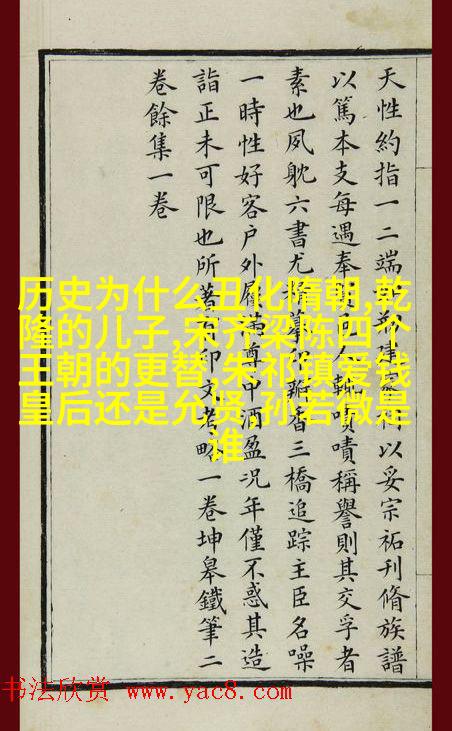 天性約指一二端建以妥宗祏刊脩族譜
以篤本支每遇奉人輒嘖嘖稱譽則其交孚者
素也夙躭六書尤摹印瓣香三橋追踪主臣名噪
一時性好客戶外屨滿尊中酒盈況年僅不惑其造
詣正未可限也所著印文考略一卷坤皋鐵筆二
卷餘集一卷
历史为什么丑化隋朝,乾
隆的儿子,宋齐梁陈四个
王朝的更替,朱祁镇爱钱
皇后还是允贤,孙若微是
谁
书法欣赏 www.yac8.com